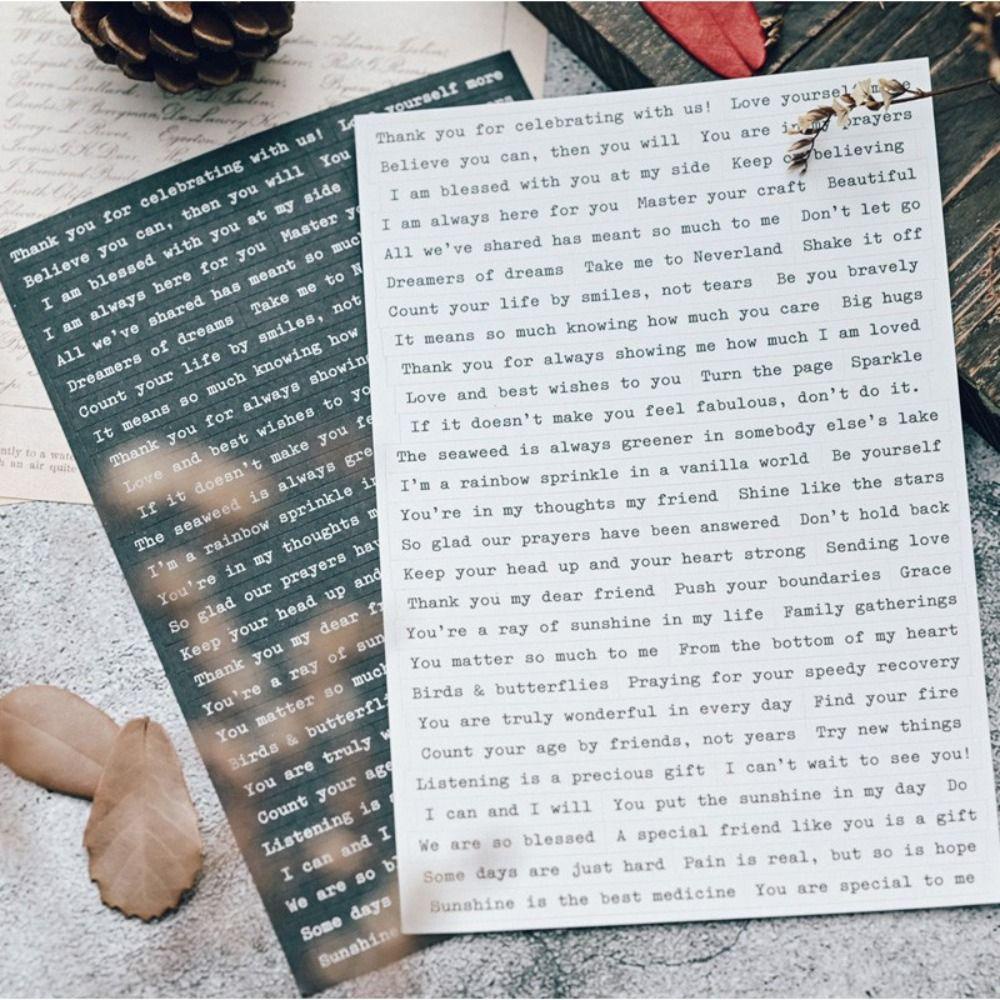 Thank you for celebrating with us! Love yourself
Believe you can, then you will You are in my prayers
I am blessed with you at my side Keep on believing
I am always here for you Master your craft Beautiful
All we've shared has meant so much to me Don't let go
Dreamers of dreams Take me to Neverland Shake it off
Count your life by smiles, not tears Be you bravely
It means so much knowing how much you care Big hugs
Thank you for always showing me how much I am loved
Love and best wishes to you Turn the page Sparkle
If it doesn't make you feel fabulous, don't do it.
The seaweed is always greener in somebody else's lake
I'm a rainbow sprinkle in a vanilla world Be yourself
You're in my thoughts my friend Shine like the stars
So glad our prayers have been answered Don't hold back
Keep your head up and your heart strong Sending love
Thank you my dear friend Push your boundaries Grace
You're a ray of sunshine in my life Family gatherings
You matter so much to me From the bottom of my heart
Birds & butterflies Praying for your speedy recovery
You are truly wonderful in every day Find your fire
Count your age by friends, not years Try new things
Listening is a precious gift I can't wait to see you!
I can and I will You put the sunshine in my day Do
We are so blessed A special friend like you is a gift
Some days are just hard Pain is real, but so is hope
Sunshine is the best medicine You are special to me
Thank you for celebrating with us! yourself more
Believe you can, then you will You
I am blessed with you at my side
I am always here for you Master
All we've shared has meant so much
Dreamers of dreams Take me to
Count your life by smiles, not
It means so much knowing how
Thank you for always showing
Love and best wishes to
If it doesn't make you
The seaweed is always
I'm a rainbow sprinkle
You're in my thoughts
So glad our prayers
Keep your head up and
Thank you my dear
You're a ray of
You matter so much
Birds &
You are truly
Count your age
Listening is
I can and I
We are so
Some days
Sunshine